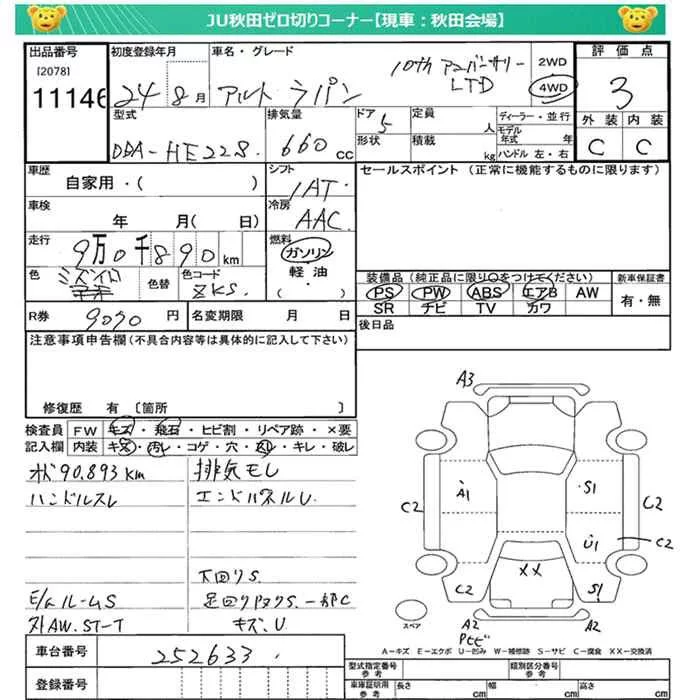 JU秋田ゼロ切りコーナー【現車：秋田会場】
出品番号
［2078］
11146
初度登録年月
24 8月
車名・グレード
アルト ラパン
10th アニバーサリー
LTD
2WD
4WD
評価点
3
外装 内装
C C
型式
DBA-HE22S.
排気量
660 cc
ドア
5
形状
定員
人
積載
kg
ディーラー・並行
モデル年式 年
ハンドル 左・右
車歴
自家用・（ ）
車検
年 月（ 日）
走行
9万0千890km
色
ミズイロ
色替
色コード
ZKS.
シフト
IAT.
冷房
AAC.
燃料
ガソリン
軽油・
（ ）
セールスポイント（正常に機能するものに限ります）
装備品（純正品に限り○をつけてください）
PS PW ABS エアB AW
SR ナビ TV カワ
新車保証書
有・無
後日品
R券 9090 円
名変期限 月 日
注意事項申告欄（不具合内容等は具体的に記入して下さい）
修復歴 有 〔箇所 〕
検査員記入欄
FW キズ・飛石・ヒビ割・リペア跡・×要
内装 キズ・汚レ・コゲ・穴・スレ・キレ・破レ
メーター90,893km
ハンドルスレ
E/ルームS
外AW.ST-T
排気モレ
エンドパネルU.
下回りS.
足回りアタリS.一部C
キズ、U
A3
A1
S1
C2
C2
U1
C2
××
C2
S1
A2
A2
スペア
A-キズ E-エクボ U-凹み W-補修跡 S-サビ C-腐食 ××-交換済
車台番号
252633.
登録番号
型式指定番号
参考
類別区分番号
参考
車庫証明用
参考
長さ cm
幅 cm
高さ cm